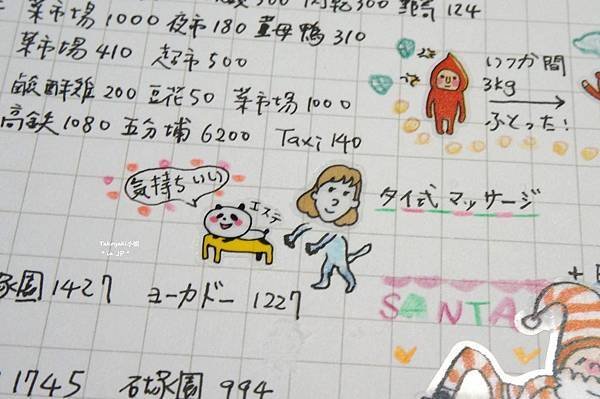 菜市場 1000 夜市 180 薑母鴨 310
菜市場 410 超市 500
鹹酥雞 200 豆花 50 菜市場 1000
高鉄 1080 五分埔 6200 Taxi 140
300
300
124
いつか間
3kg
ふとった！
気持ちいい
エステ
タイ式 マッサージ
Takoyaki小姐
in JP
園 1427 ヨーカドー 1227
SANTA
1745 石塚園 994